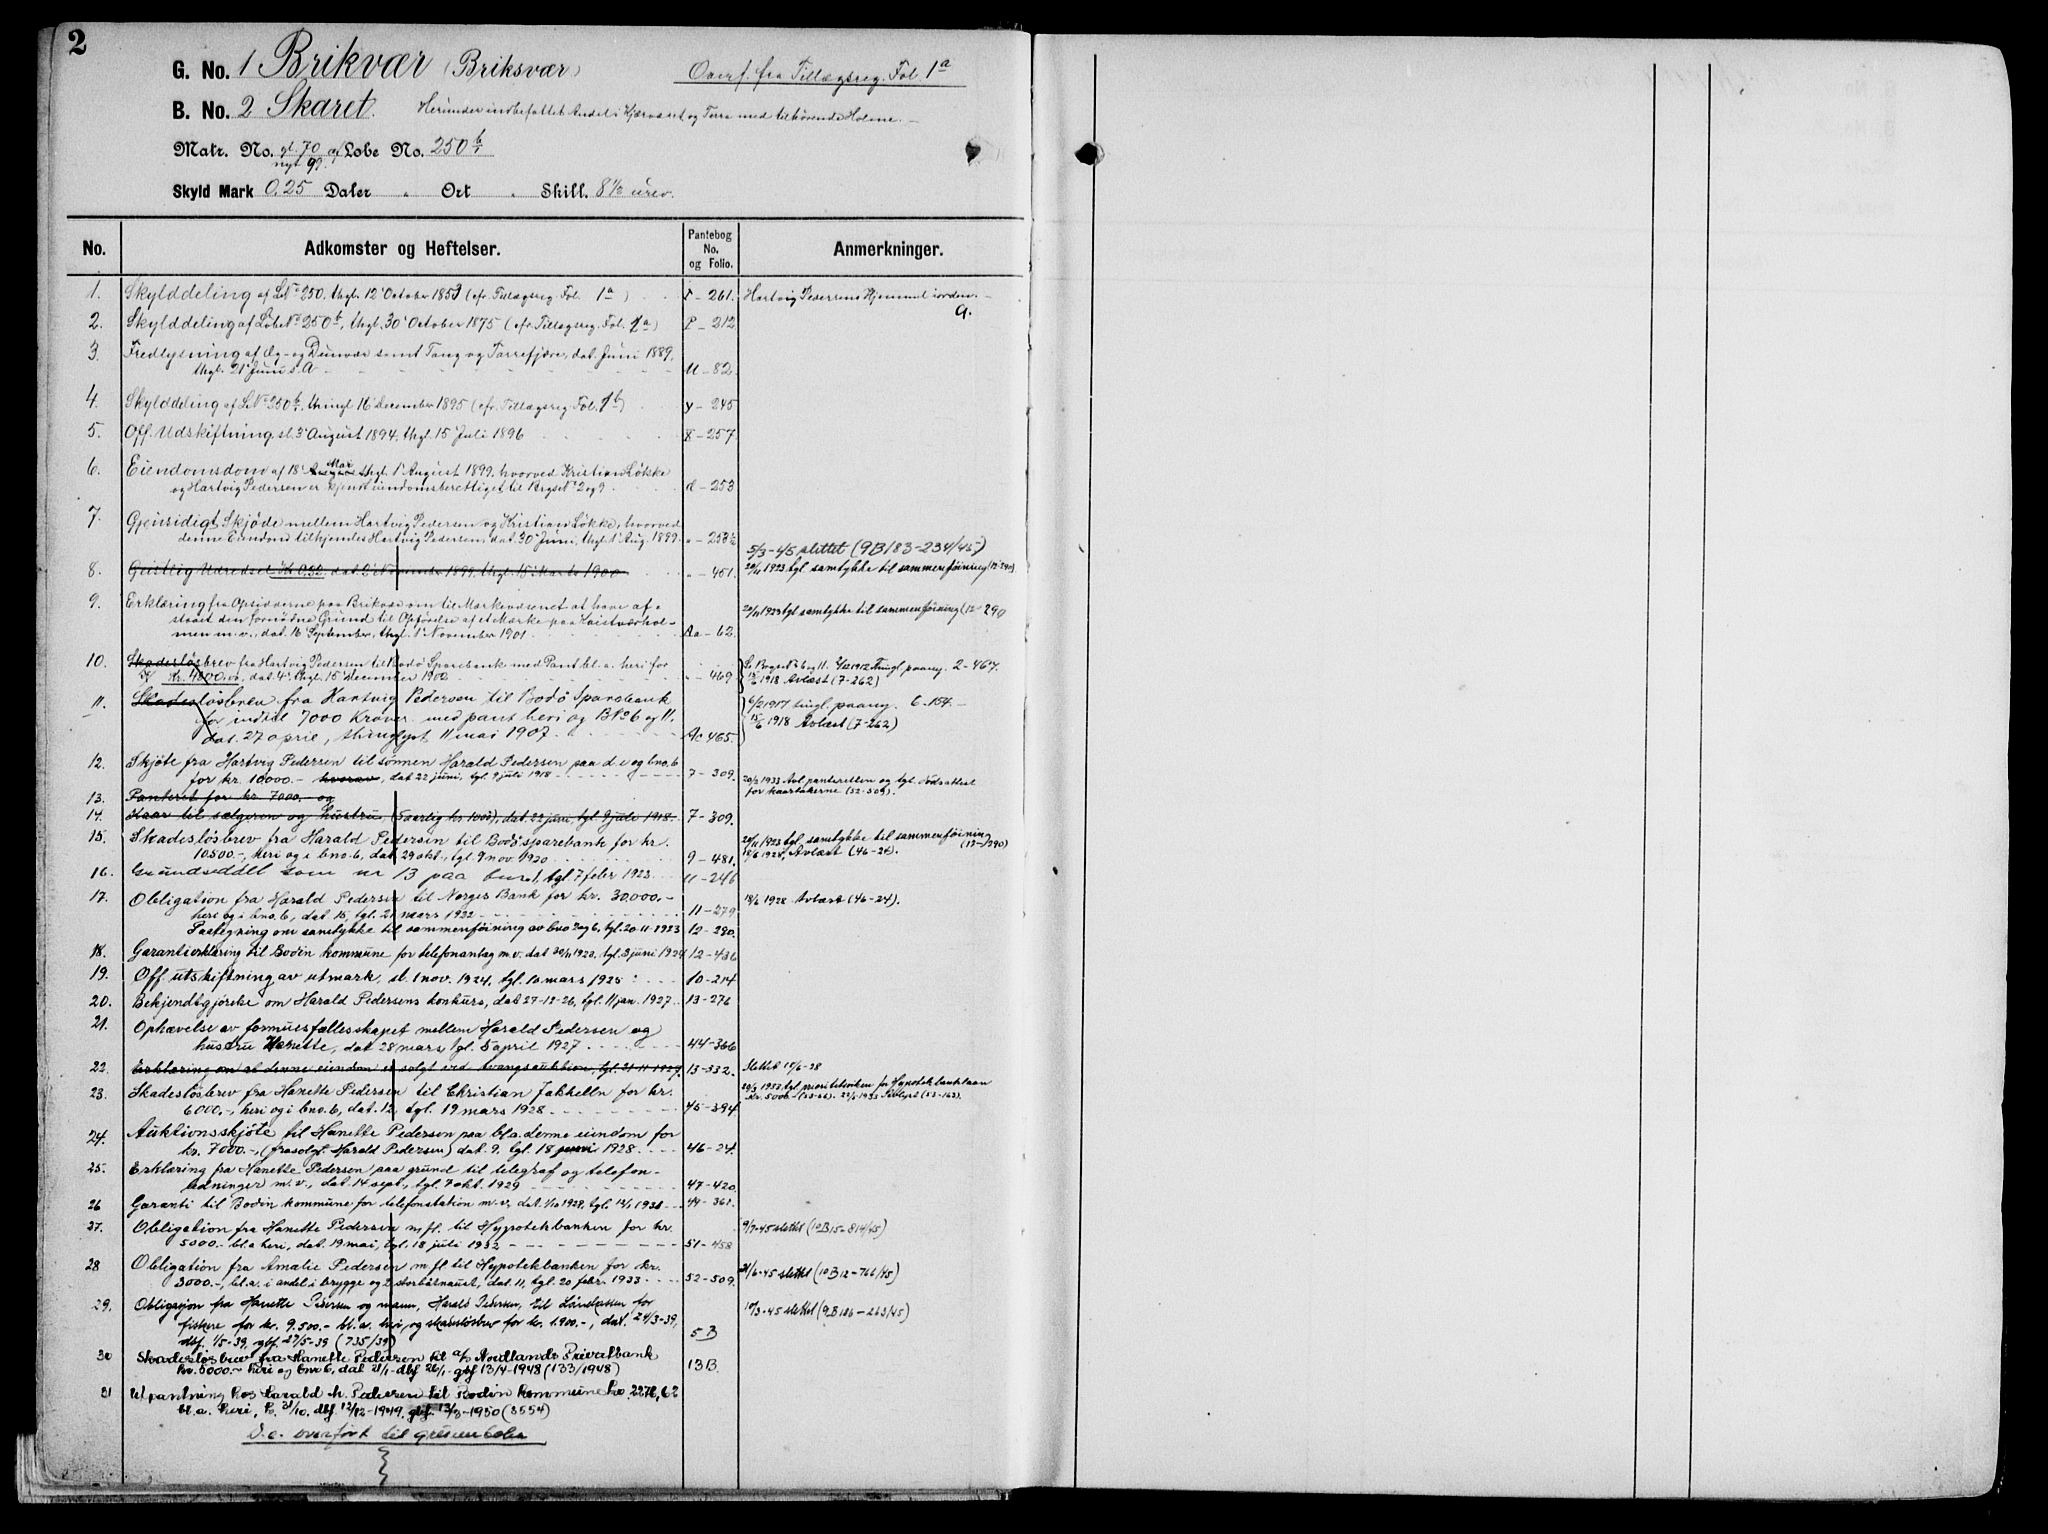 2
G. No. 1 Brikvær (Briksvær) Overf. fra Tillægsreg. Fol. 1a
B. No. 2 Skaret. Herunder indbefattet Andel i Kjærværet og Terra med tilhørende Holme.
Matr. No. gl. 70 af Løbe No. 250 b
nyt 99.
Skyld Mark 0.25 Daler " Ort " Skill. 8 1/2 urev.
No. Adkomster og Heftelser. Pantebog No. og Folio. Anmerkninger.
1. Skylddeling af LNo 250, thgl. 12' October 1853 (cfr. Tillægsreg. Fol. 1a) - 261. Hartvig Pedersens Hjemmel i orden.
a.
2. Skylddeling af Løbe No 250 b, thgl. 30' October 1875 (cfr. Tillægsreg. Fol. 1a) P - 212
3. Fredlysning af Æg- og Dunvær samt Tang og Tarrefjære, dat. Juni 1889,
thgl. 21' Juni s. A U - 82.
4. Skylddeling af LNo 250 b, thingl. 16' December 1895 (cfr. Tillægsreg. Fol. 1b) y - 245
5. Off. Udskiftning, sl. 3' August 1894, thgl. 15' Juli 1896 - 257.
6. Eiendomsdom af 18' Mai thgl. 1' August 1899, hvorved Kristian Løkke
og Hartvig Pedersen er kjendt eiendomsberettiget til Brgs No 2 og 9 d - 253
7. Gjensidigt Skjøde mellem Hartvig Pedersen og Kristian Løkke, hvorved
denne Eiendom tilhjemles Hartvig Pedersen, dat. 30' Juni, thgl. 1' Aug. 1899. " - 253 1/2
5/3-45 slettet (9B183-234/45)
8. Geistlig Udredsel K 0.32, dat. November 1899, thgl. 15' Marts 1900 " - 451. 20/11 1923 tgl. samtykke til sammenføining (12-290)
9. Erklæring fra Opsidderne paa Brikvær om til Markevæsenet at have af-
staaet den fornødne Grund til Opførelse af et Mærke paa
men m. v., dat. 16' September, thgl. 1' November 1901. Aa - 62. 20/11 1923 tgl samtykke til sammenføining (12-290
10. Skadesløsbrev fra Hartvig Pedersen til Bodø Sparebank med Pant bl. a. heri for
Kr. 4800,00, dat. 4', thgl. 15' December 1900 " - 469 Se Brgs No 6 og 11. 2/12 1912 Thingl. paany. 2-467.
15/6 1918 Avlæst (7-262)
11. Skadesløsbrev fra Hartvig Pedersen til Bodø Sparebank
for indtil 7000 kroner med pant heri og BNo 6 og 11.
dat. 27 april, thinglyst 11 mai 1907. Ac 465. 6/2 1917 tingl. paany. 6.154.
15/6 1918 Avlæst (7-262)
12. Skjøte fra Hartvig Pedersen til sønnen Harald Pedersen paa d. e og bno. 6
for kr. 10000.- hvorav, dat 22 juni, tgl. 9 juli 1918 7 - 309. 20/2 1933 Avl. panteretten og tgl. dødsattest
for kaartakerne (52-509).
13. Panteret for kr. 7000,- og
14. Kaar til sælgeren og hustru (5 aarlig kr 1000), dat. 22 juni, tgl. 9 juli 1918 7 - 309.
15. Skadesløsbrev fra Harald Pedersen til Bodø sparebank for kr.
10500.-, heri og i bno. 6, dat 29 okt., tgl. 9 nov. 1920 9 - 481. 20/11 1923 tgl. samtykke til sammenføining (12-290)
18/6 1928, Avlæst (46-24).
16. Grundseddel som nr 13 paa bnr. 1, tgl. 7 febr 1923 11 - 246
17. Obligation fra Harald Pedersen til Norges Bank for kr. 30.000.-
heri og i bno. 6, dat. 15, tgl. 21 mars 1922 11 - 279 18/6 1928 Avlæst (46-24).
Paategning om samtykke til sammenføining av bno 2 og 6, tgl. 20-11-1923 12 - 290.
18. Garantierklæring til Bodin kommune for telefonanlæg m. v. dat 30/11 1923, tgl. 3 juni 1924 12 - 436
19. Off. utskiftning av utmark, sl. 1 nov. 1924, tgl. 10 mars 1925 10 - 214
20. Bekjendtgjørelse om Harald Pedersens konkurs, dat 27-12-26, tgl. 11 jan. 1927 13 - 276
21. Ophævelse av formuesfællesskapet mellem Harald Pedersen og
hustru Hanette, dat 28 mars, tgl. 5 april 1927 44 - 366
22. Erklæring om at denne eiendom er solgt ved tvangsauktion, tgl. 21-11-1927. 13 - 532. Slettet 18/6-28
23. Skadesløsbrev fra Hanette Pedersen til Christian Jakhelln for kr.
6000.-, heri og i bno. 6, dat. 12, tgl. 19 mars 1928 45 - 394 tgl. prioritetsviken for Hypotekbanklaan
kr. 5000.- 1933 Avlyst (53-163).
24. Auktionsskjøte til Hanette Pedersen paa bl. a. denne eiendom for
kr. 7000.-, (frasolgt Harald Pedersen) dat 9. tgl. 18 juni 1928 46 - 24.
25. Erklæring fra Hanette Pedersen paa grund til telegraf og telefon-
ledninger m. v., dat. 14 sept., tgl. 7 okt. 1929 47 - 420.
26 Garanti til Bodin kommune for telefonstation m. v., dat. 1/10 1929, tgl. 14/1 1931 49 - 361.
27. Obligation fra Hanette Pedersen m. fl. til Hypotekbanken for kr.
5000.- bl. a. heri, dat. 19 mai, tgl. 18 juli 1932 51 - 458 9/7-45 slettet (10B15-814/45)
28 Obligation fra Amalie Pedersen m fl til Hypotekbanken for kr.
3000.-, bl. a. i andel i brygge og 2 storbåtnaust, dat. 11, tgl. 20 febr. 1933 52 - 509. 21/6-45 slettet (10B12-766/45)
29. Obligasjon fra Hanette Pedersen og mann, Harald Pedersen, til Lånekassen for
fiskere for kr. 9.500.- bl. a. heri, og skadesløsbr for kr. 1.900.-, dat. 24/3-39,
dbf. 1/5-39, gbf. 27/5-39 (735/39) 5 B 10/3-45 slettet (9B186-263/45)
30 Skadesløsbrev fra Hanette Pedersen til a/s Nordlands Privatbank
kr. 5000.- heri og bno 6, dat 21/1 - dbf 26/1 - gbf 13/4-1948 (133/1948) 13 B.
31 Utpantning hos Harald H. Pedersen til Bodin kommune kr. 2276,62
bl. a. heri, h. 31/10, dbf 12/12-1949, gbf. 13/3-1950 (3554)
D. e. overført til grunnboken